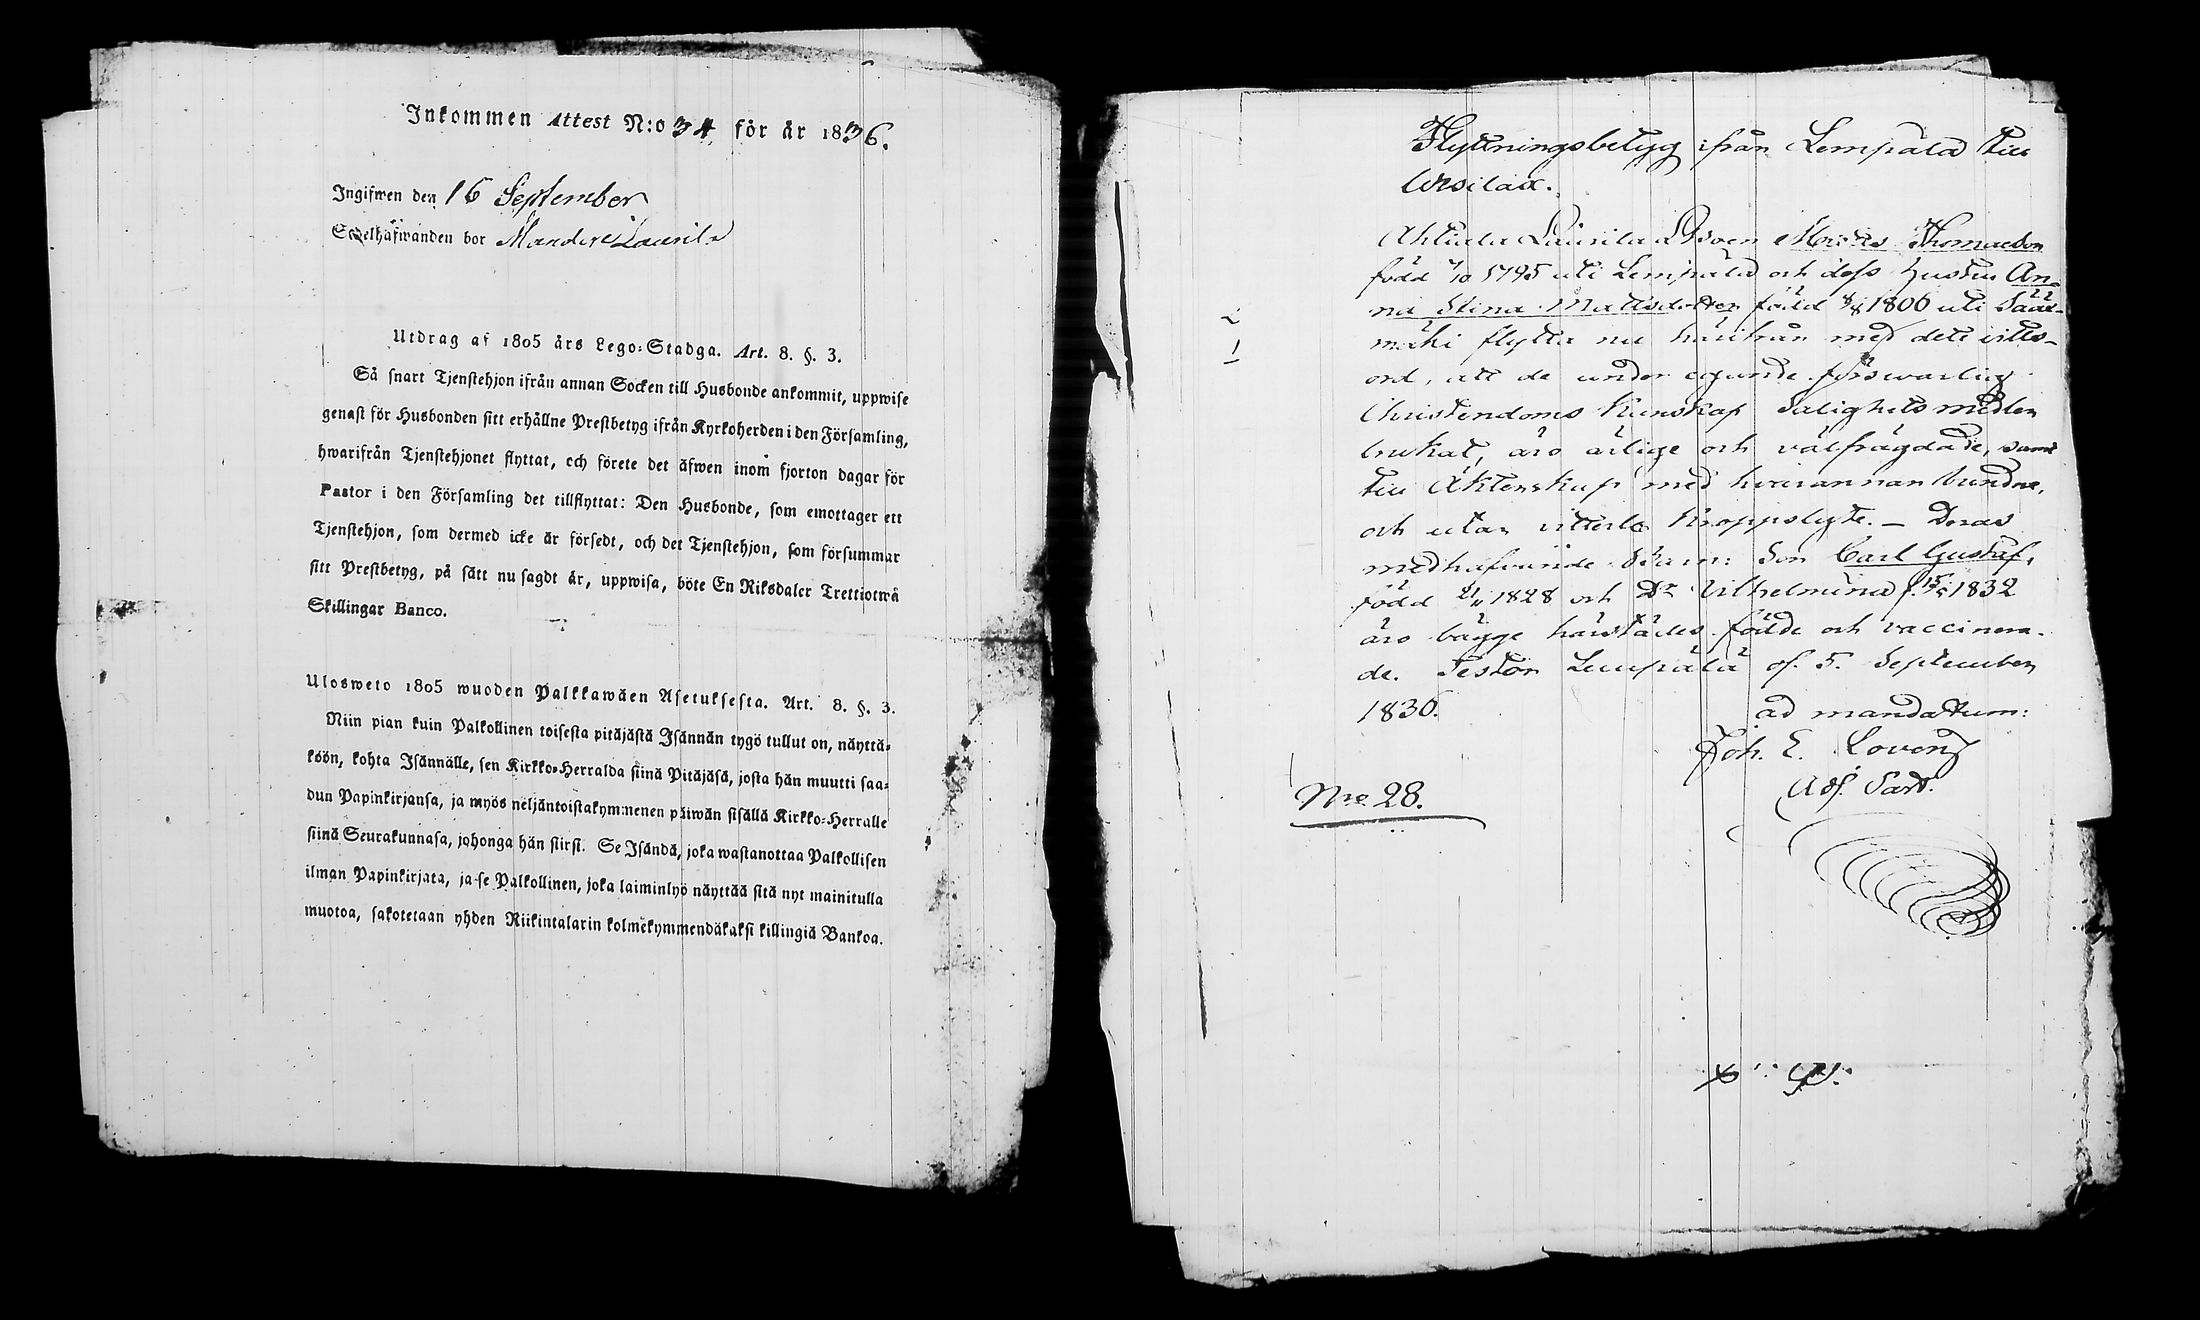 Inkommen Attest N:o 34 för år 1836.
Ingifwen den 16 September
Sedelhafwanden bor Mandere Laurila
Utdrag af 1805 års Lego-Stadga. Art. 8. §. 3.
Så snart Tjenstehjon ifrån annan Socken till Husbonde ankommit, uppwise
genast för Husbonden sitt erhållne Prestbetyg ifrån Kyrkoherden i den Församling,
hwarifrån Tjenstehjonet flyttat, och förete det äfwen inom fjorton dagar för
Pastor i den Församling det tillflyttat: Den Husbonde, som emottager ett
Tjenstehjon, som dermed icke är försedt, och det Tjenstehjon, som försummar
sitt Prestbetyg, på sätt nu sagdt är, uppwisa, böte En Riksdaler Trettiotwå
Skillingar Banco.
Ulosweto 1805 wuoden Palkkawäen Asetuksesta. Art. 8. §. 3.
Niin pian kuin Palkollinen toisesta pitäjästä Isännän tygö tullut on, näyttä-
köön, kohta Isännälle, sen Kirkko-Herralda siinä Pitäjäsä, josta hän muutti saa-
dun Papinkirjansa, ja myös neljäntoistakymmenen päiwän sisällä Kirkko-Herralle
siinä Seurakunnasa, johonga hän siirsi. Se Isändä, joka wastanottaa Palkollisen
ilman Papinkirjata, ja se Palkollinen, joka laiminlyö näyttää sitä nyt mainitulla
muotoa, sakotetaan yhden Riikintalarin kolmekymmendäkaksi killingiä Bankoa.
Flyttningsbetyg ifrån Lempälä till
Wesilax.
Ahtiala Laurila Thomasson
född 1795 uti Lempälä och dess hustru An-
na Stina Mattsdotter född 1806 uti Sääx-
mäki flytta nu härifrån med det vitts-
ord, att de under egande förswarlig
Christendoms Kunskap Salighets medlen
brukat, äro ärlige och välfrägdade, samt
till Äktenskap med hvarannan bundne,
och utan Kroppslyte. – Deras
medhafwande Barn: Son Carl Gustaf,
född 21/11 1828 och Dr Vilhelmina f. 1832
äro bägge härstädes födde och vaccinera-
de. Testor Lempälä of. 5. September
1836.
ad mandatum:
Joh. E. Loven
Adj. Sard.
Nro 28.
2
1